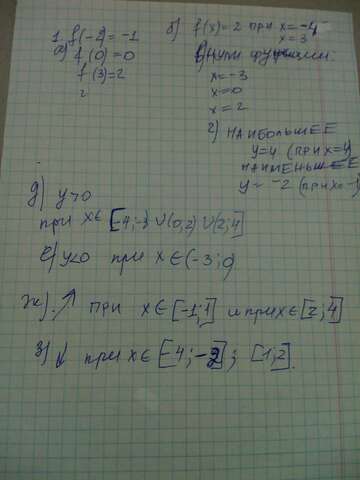 1. f(-2) = -1
а) f(0) = 0
f(3) = 2
б) f(x) = 2 при x = -4
x = 3
в) нули функции
x = -3
x = 0
x = 2
г) НАИБОЛЬШЕЕ
y = 4 (при x = 4
НАИМЕНЬШЕЕ
y = -2 (при x = -1
д) y>0
при x∈[-4;-3)∪(0;2)∪(2;4]
е) y<0 при x∈(-3;0)
ж) ↗ при x∈[-1;1] и при x∈[2;4]
з) ↓ при x∈[-4;-2]; [1;2].